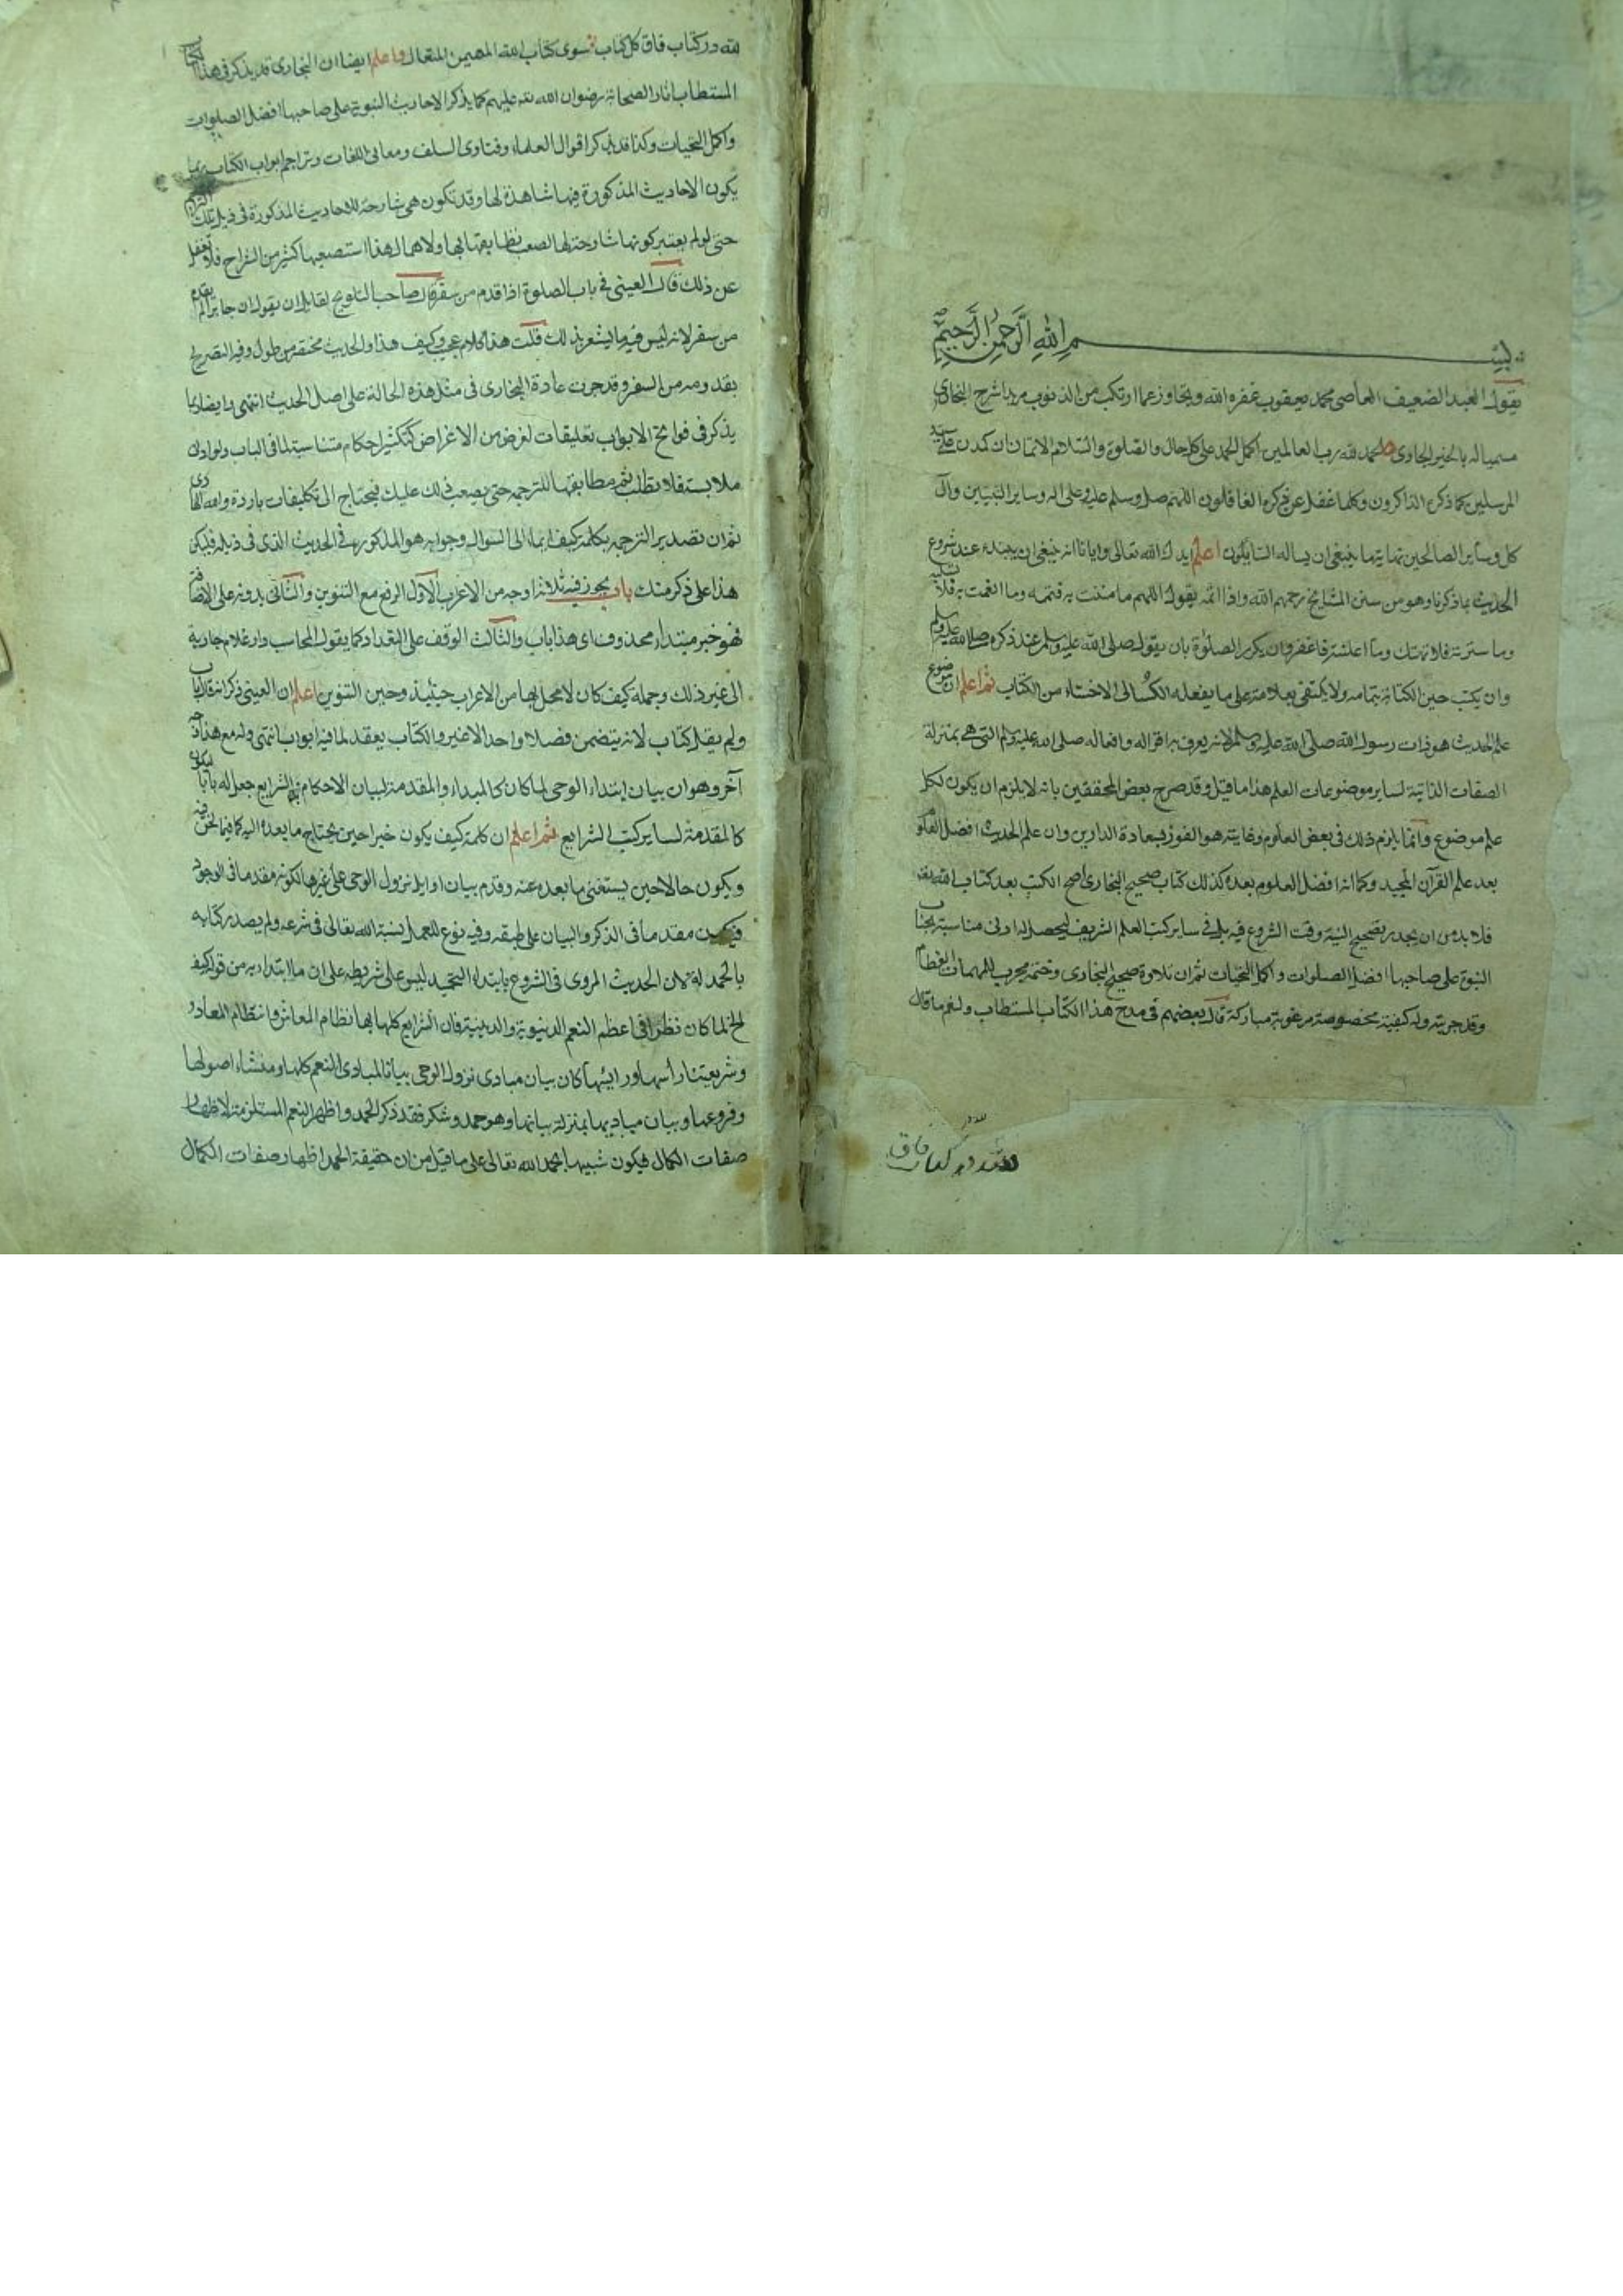 بسم الله الرحمن الرحيم
يقول العبد الضعيف العاصي محمد يعقوب غفره الله ويتجاوز عما ارتكب من الذنوب مريدا شرح البخاري
مسميا له بالخير الجاري الحمد لله رب العالمين اكمل الحمد على كل حال والصلوة والسلام الاتمان الاكملان على سيد
المرسلين كلما ذكره الذاكرون وكلما غفل عن ذكره الغافلون اللهم صل وسلم عليه وعلى اله وساير النبيين وال
كل وساير الصالحين نهاية ما ينبغي ان يساله السايلون اعلم ايدك الله تعالى وايانا انه ينبغي ان يبتدء عند شروع
الحديث بما ذكرنا وهو من سنن المشايخ رحمهم الله واذا اتمه يقول اللهم ما مننت به فتممه وما انعمت به فلا تسلبه
وما سترته فلا تهتك وما اعلنته فاغفر وان يكرر الصلوة بان يقول صلى الله عليه وسلم عند ذكره صلى الله عليه وسلم
وان يكتب حين الكتابة بتمامه ولا يكتفي بعلامته على ما يفعله الكسالى الاخساء من الكتاب ثم اعلم ان موضوع
علم الحديث هو ذات رسول الله صلى الله عليه وسلم لانه يعرف به اقواله وافعاله صلى الله عليه وسلم التي هي بمنزلة
الصفات الذاتية لساير موضوعات العلم هذا ما قيل وقد صرح بعض المحققين بانه لا يلزم ان يكون لكل
علم موضوع وانما يلزم ذلك في بعض العلوم وغايته هو الفوز بسعادة الدارين وان علم الحديث افضل العلوم
بعد علم القرآن المجيد وكما انه افضل العلوم بعده كذلك كتاب صحيح البخاري اصح الكتب بعد كتاب الله تعالى
فلا بد من ان يجدد تصحيح النية وقت الشروع فيه بل في ساير كتب العلم الشريف ليحصل له ادنى مناسبة بجناب
النبوة على صاحبها افضل الصلوات واكمل التحيات ثم ان تلاوة صحيح البخاري وختمه مجرب للمهمات العظام
وقد جربته وله كيفية مخصوصة مرغوبة مباركة قال بعضهم في مدح هذا الكتاب المستطاب ولنعم ما قال
لله در كتاب فاق
لله در كتاب فاق كل كتاب سوى كتاب الله المهيمن المتعال واعلم ايضا ان البخاري قد يذكر في هذا الكتاب
المستطاب اثار الصحابة رضوان الله تعالى عليهم كما يذكر الاحاديث النبوية على صاحبها افضل الصلوات
واكمل التحيات وكذا قد يذكر اقوال العلماء وفتاوى السلف ومعاني اللغات وتراجم ابواب الكتاب ربما
يكون الاحاديث المذكورة فيها شاهدة لها وقد تكون هي شارحة للاحاديث المذكورة في ذيل تلك التراجم
حتى لو لم يعتبر كونها شارحة لها لصعب تطابقها بها ولاهمال هذا استصعبها كثير من الشراح فلا تغفل
عن ذلك قال العيني في باب الصلوة اذا قدم من سفر قال صاحب التلويح لقايل ان يقول ان جابرا لم يقدم
من سفر لانه ليس فيه ما يشعر بذلك قلت هذا كلام عجيب وكيف هذا والحديث مختصر من مطول وفيه التصريح
بقدومه من السفر وقد جرت عادة البخاري في مثل هذه الحالة على اصل الحديث انتهى وايضا ربما
يذكر في فواتح الابواب تعليقات لغرض من الاغراض كتكثير احكام متناسبة لما في الباب ولو ادنى
ملابسة فلا تطلب ثمه مطابقتها للترجمة حتى يصعب ذلك عليك فيحتاج الى تكليفات باردة والله الهادي
ثم ان تصدير الترجمة بكلمة كيف ايماء الى السوال وجوابه هو المذكور في الحديث الذي في ذيله فليكن
هذا على ذكر منك باب يجوز فيه ثلاثة اوجه من الاعراب الاول الرفع مع التنوين والثاني بدونه على الاضافة
فهو خبر مبتداء محذوف اي هذا باب والثالث الوقف على التعداد كما يقول المحاسب دار غلام جارية
الى غير ذلك وجملة كيف كان لا محل لها من الاعراب حينئذ وحين التنوين اعلم ان العيني ذكر انه قال باب
ولم يقل كتاب لانه يتضمن فصلا واحدا لا غير والكتاب يعقد لما فيه ابواب انتهى وله مع هذا وجه
آخر وهو ان بيان ابتداء الوحي لما كان كالمبداء والمقدمة لبيان الاحكام والشرايع جعل له بابا ليكون
كالمقدمة لساير كتب الشرايع ثم اعلم ان كلمة كيف يكون خبرا حين يحتاج ما بعده اليه كما فيما نحن فيه
ويكون حالا حين يستغنى ما بعده عنه وقدم بيان اوايل نزول الوحي على غيرها لكونه مقدما في الوجود
فيكون مقدما في الذكر والبيان على طبقه وفيه نوع للعمل بسنة الله تعالى في شرعه ولم يصدر كتابه
بالحمد له لان الحديث المروي في الشروع بابتداء التحميد ليس على شريطه على ان ما ابتدا به من قوله كيف
الخ لما كان نظرا في اعظم النعم الدنيوية والدينية فان الشرايع كلها بها نظام المعاش وانتظام المعاد و
وشريعتنا راسها ورئيسها كان بيان مبادي نزول الوحي بيانا لمبادي النعم كلها ومنشاء اصولها
وفروعها وبيان مباديها بمنزلة بيانها وهو حمد وشكر فقد ذكر الحمد واظهر النعم المستلزمة لاظهار
صفات الكمال فيكون شبيها بحمد الله تعالى على ما قيل من ان حقيقة الحمد اظهار صفات الكمال